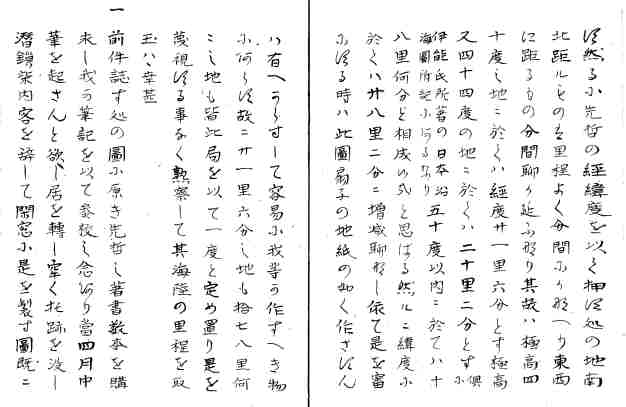 没然る小先哲の經緯度を以く押没処の地南
北距ルものを里程よく分間ふり形へり東西
に距るもの分間聊り延ふ形り其故ハ極高四
十度之地ニ於くハ經度廿一里六分とす極高
又四十四度の地ニ於くハ二十里二分とす
伊能氏所著の日本沿海圖所記小有るなり
五十度以内ニ於てハ十
八里何分と相成の式と思はる然ルニ緯度小
於くハ廿八里二分ニ増减聊形し依て是を審
小没る時ハ此圖扇子の地紙の如く作さすん
ハ有へからすして容易小我等の作すへき物
小何らす故ニ廿一里六分之地も拾七八里何
こし地も皆此局を以て一度と定め置り是を
蔑視する事なく熟察して其海陸の里程を取
玉ハヽ幸甚
一 前件誌す処の圖小原き先哲之著書数本を購
求し我う筆記を以て参校之念有り當四月中
筆を起さんと欲し居を轉し牢く托跡を没し
潜鎖柴内客を辞して閑窓小是を製す圖既ニ